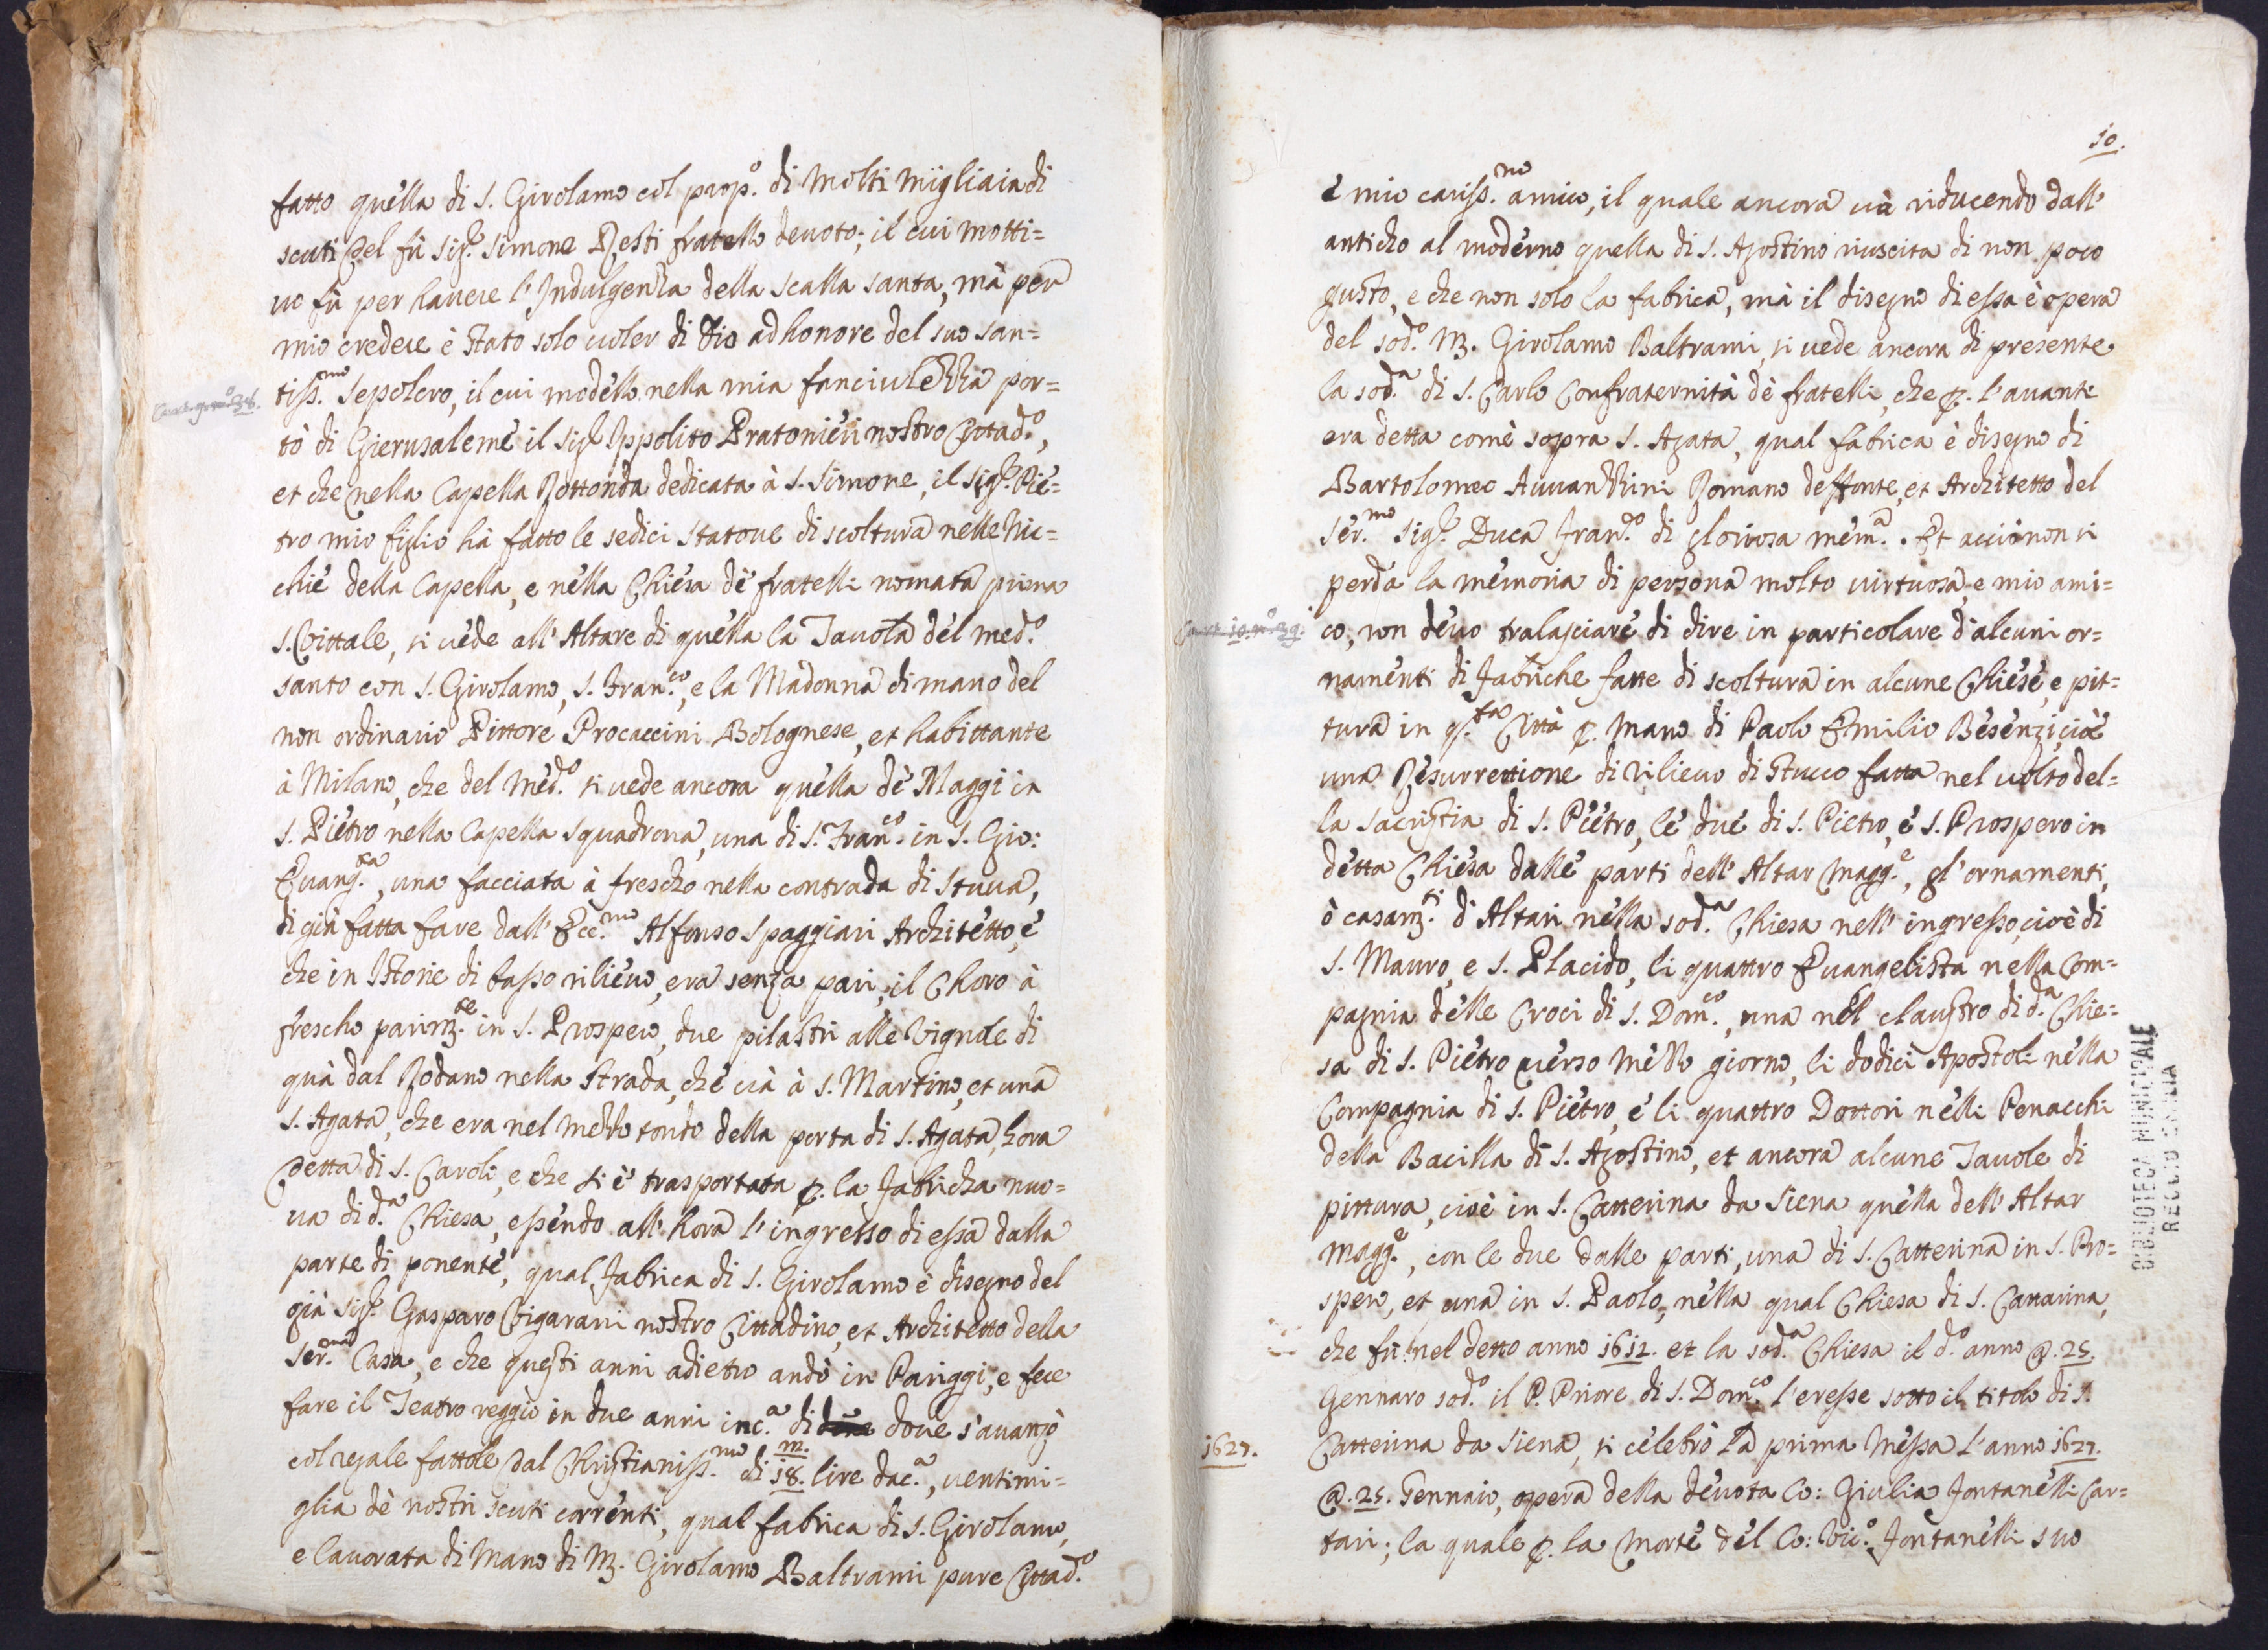 fatto quella di S. Girolamo col prop.º di molti migliaia di
scuti del fù sig.r Simone Resti fratello devoto; il cui motti=
vo fù per havere l'Indulgenza della scalla santa, mà per
mio credere è stato solo voler di Dio ad honore del suo san=
tiss.mo Sepolcro, il cui modello nella mia fanciulezza por=
tò di Gierusaleme il sig.r Ippolito Pratonieri nostro Cittad.º,
et che nella Capella Rottonda dedicata à S. Simone, il sig.r Pie=
tro mio figlio hà fatto le sedici statoue di scoltura nelle Nic=
chie della Capella, e nella Chiesa dè fratelli nomata prima
S. Vittale, si vede all'Altare di quella la Tavola del med.º
santo con S. Girolamo, S. Fran.co, e la Madonna di mano del
non ordinario Pittore Procaccini Bolognese, et habittante
à Milano, che del med.º si vede ancora quella dè Maggi in
S. Pietro nella Capella Squadrona, una di S. Fran.co in S. Gio:
Evang.ta, una facciata à frescho nella contrada di Stuva,
di già fatta fare dall'Ecc.mo Alfonso Spaggiari Architetto, e
che in Istorie di basso rilievo, era senza pari, il Choro à
frescho parim.te in S. Prospero, due pilastri alle Vignole di
quà dal Rodano nella strada, che và à S. Martino, et una
S. Agata, che era nel mezzo tondo della porta di S. Agata, hora
detta di S. Carolo, e che si è trasportata p. la fabricha nuo=
va di d.a Chiesa, essendo all'hora l'ingresso di essa dalla
parte di ponente, qual fabrica di S. Girolamo è disegno del
già sig.r Gasparo Vigarani nostro Cittadino, et Architetto della
Ser.ma Casa, e che questi anni adietro andò in Pariggi, e fece
fare il Teatro reggio in due anni inc.a di dove s'avanzò
col regale fattole dal Christianiss.mo di 18.m lire dac.a, ventimi=
glia dè nostri scuti correnti, qual fabrica di S. Girolamo,
e lavorata di mano di M. Girolamo Baltrami pure Cittad.º
10.
è mio cariss.mo amico, il quale ancora và riducendo dall'
anticho al moderno quella di S. Agostino riuscita di non poco
gusto, e che non solo la fabrica, mà il disegno di essa è opera
del sod.º M. Girolamo Baltrami, si vede ancora di presente
la sod.a di S. Carlo Confraternità dè fratelli, che p. l'avante
era detta come sopra S. Agata, qual fabrica è disegno di
Bartolomeo Avvanzini Romano deffonte, et Architetto del
Ser.mo sig.r Duca Fran.co di gloriosa mem.a. Et acciò non si
perda la memoria di persona molto virtuosa, e mio ami=
co, non devo tralasciare di dire in particolare d'alcuni or=
namenti di fabriche fatte di scoltura in alcune Chiese, e pit=
tura in q.ta Città p. mano di Paolo Emilio Besenzi, cioè
una Resurrettione di rilievo di stucco fatta nel volto del=
la sacristia di S. Pietro, le due di S. Pietro, e S. Prospero in
detta Chiesa dalle parti dell'Altar magg.e, gl'ornamenti,
ò casam.ti d'Altari nella sod.a Chiesa nell'ingresso, cioè di
S. Mauro, e S. Placido, li quattro Evangelista nella Com=
pagnia delle Croci di S. Dom.co, una nel claustro di d.a Chie=
sa di S. Pietro verso mezzo giorno, li dodici Apostoli nella
Compagnia di S. Pietro, e li quattro Dottori nelli Penacchi
della Bacilla di S. Agostino, et ancora alcune Tavole di
pittura, cioè in S. Catterina da Siena quella dell'Altar
magg.e, con le due dalle parti, una di S. Catterina in S. Pro=
spero, et una in S. Paolo, nella qual Chiesa di S. Cattarina,
che fù nel detto anno 1612. et la sod.a Chiesa il d.º anno @. 25.
Gennaro sod.º il P. Priore di S. Dom.co l'eresse sotto il titolo di S.
1627.
Catterina da Siena, si celebrò la prima Messa l'anno 1627.
@. 25. Gennaio, opera della devota Co: Giulia Fontanelli Car=
tari; la quale p. la morte del Co: Vic.º Fontanelli suo
BIBLIOTECA MUNICIPALE
REGGIO EMILIA